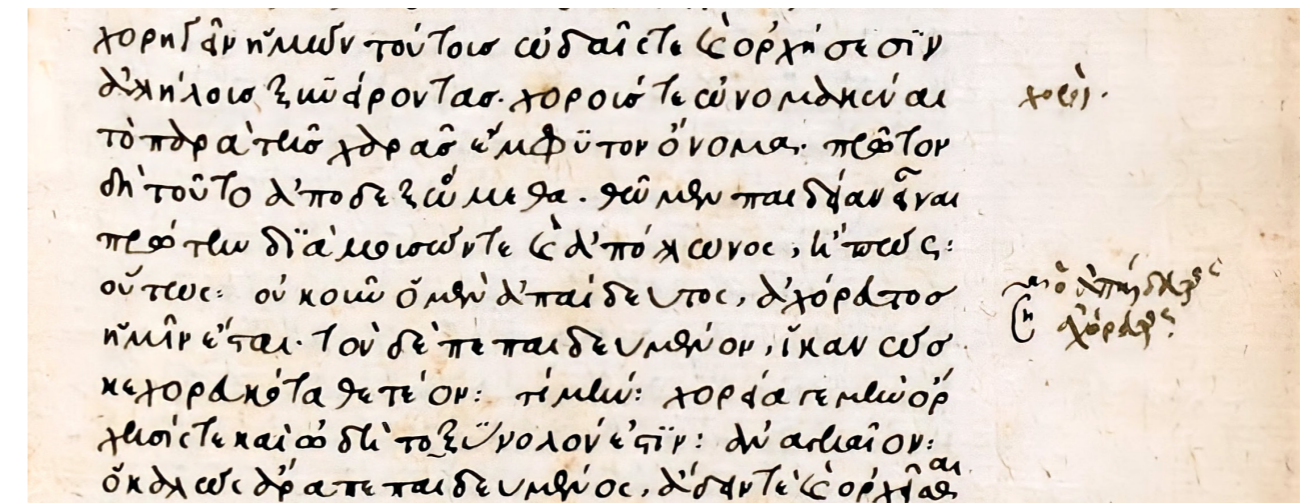 χορηγεῖν ἡμῶν τούτοις ᾠδαῖς τε καὶ ὀρχήσεσϊν
ἀλλήλοις ξυνείροντας. χορούς τε ὠνομακέναι
τὸ παρὰ τῆς χαρᾶς ἔμφϋτον ὄνομα. πρῶτον
δὴ τοῦτο ἀποδεξώμεθα. θῶμεν παιδείαν εἶναι
πρώτην δϊὰ μουσῶν τε καὶ ἀπόλλωνος, ἢ πῶς:
οὕτως: οὐκοῦν ὁ μὲν ἀπαίδευτος, ἀχόρευτος
ἡμῖν ἔσται. τὸν δὲ πεπαιδευμένον, ἱκανῶς
κεχορευκότα θετέον: τί μήν: χορεία γε μὴν ὄρ
χησίς τε καὶ ᾠδὴ τὸ ξύνολόν ἐστϊν: ἀναγκαῖον:
ὁ καλῶς ἄρα πεπαιδευμένος, ᾄδειν τε καὶ ὀρχεῖσθαι
χοροί.